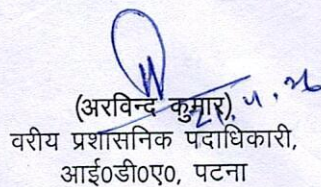 (अरविन्द कुमार)
वरीय प्रशासनिक पदाधिकारी,
आई0डी0ए0, पटना